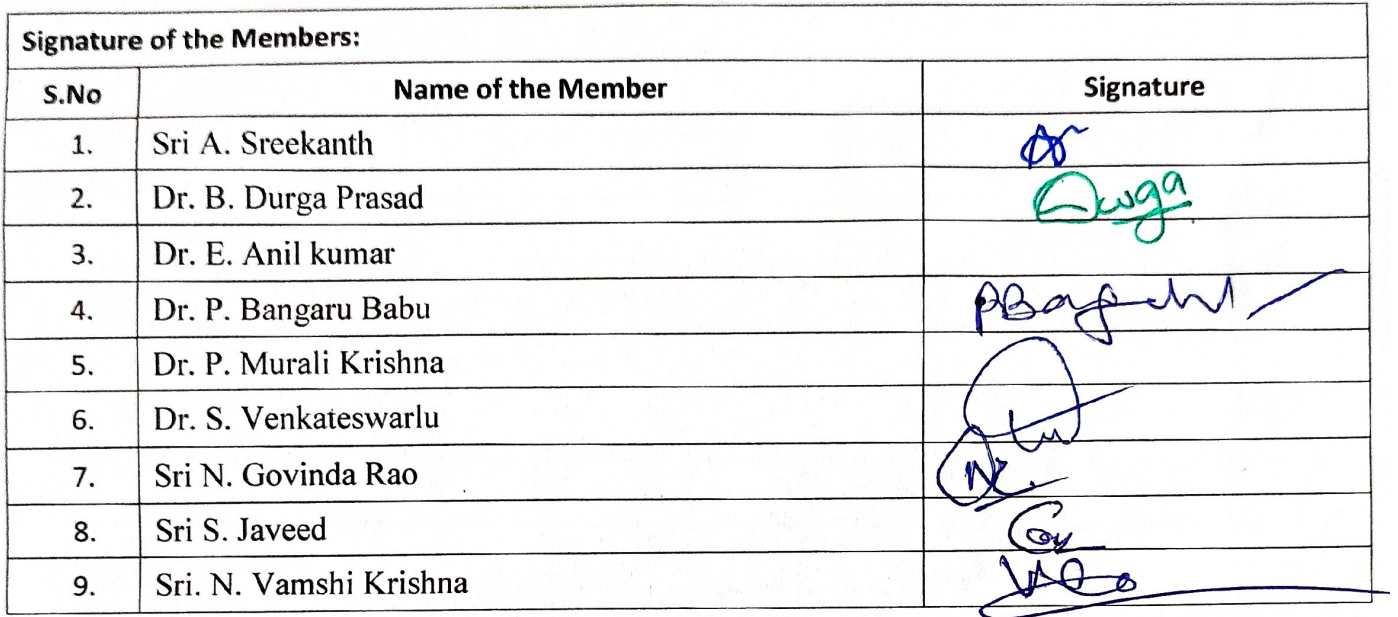 Signature of the Members:
S.No Name of the Member Signature
1. Sri A. Sreekanth
2. Dr. B. Durga Prasad Durga
3. Dr. E. Anil kumar
4. Dr. P. Bangaru Babu
5. Dr. P. Murali Krishna
6. Dr. S. Venkateswarlu
7. Sri N. Govinda Rao
8. Sri S. Javeed
9. Sri. N. Vamshi Krishna